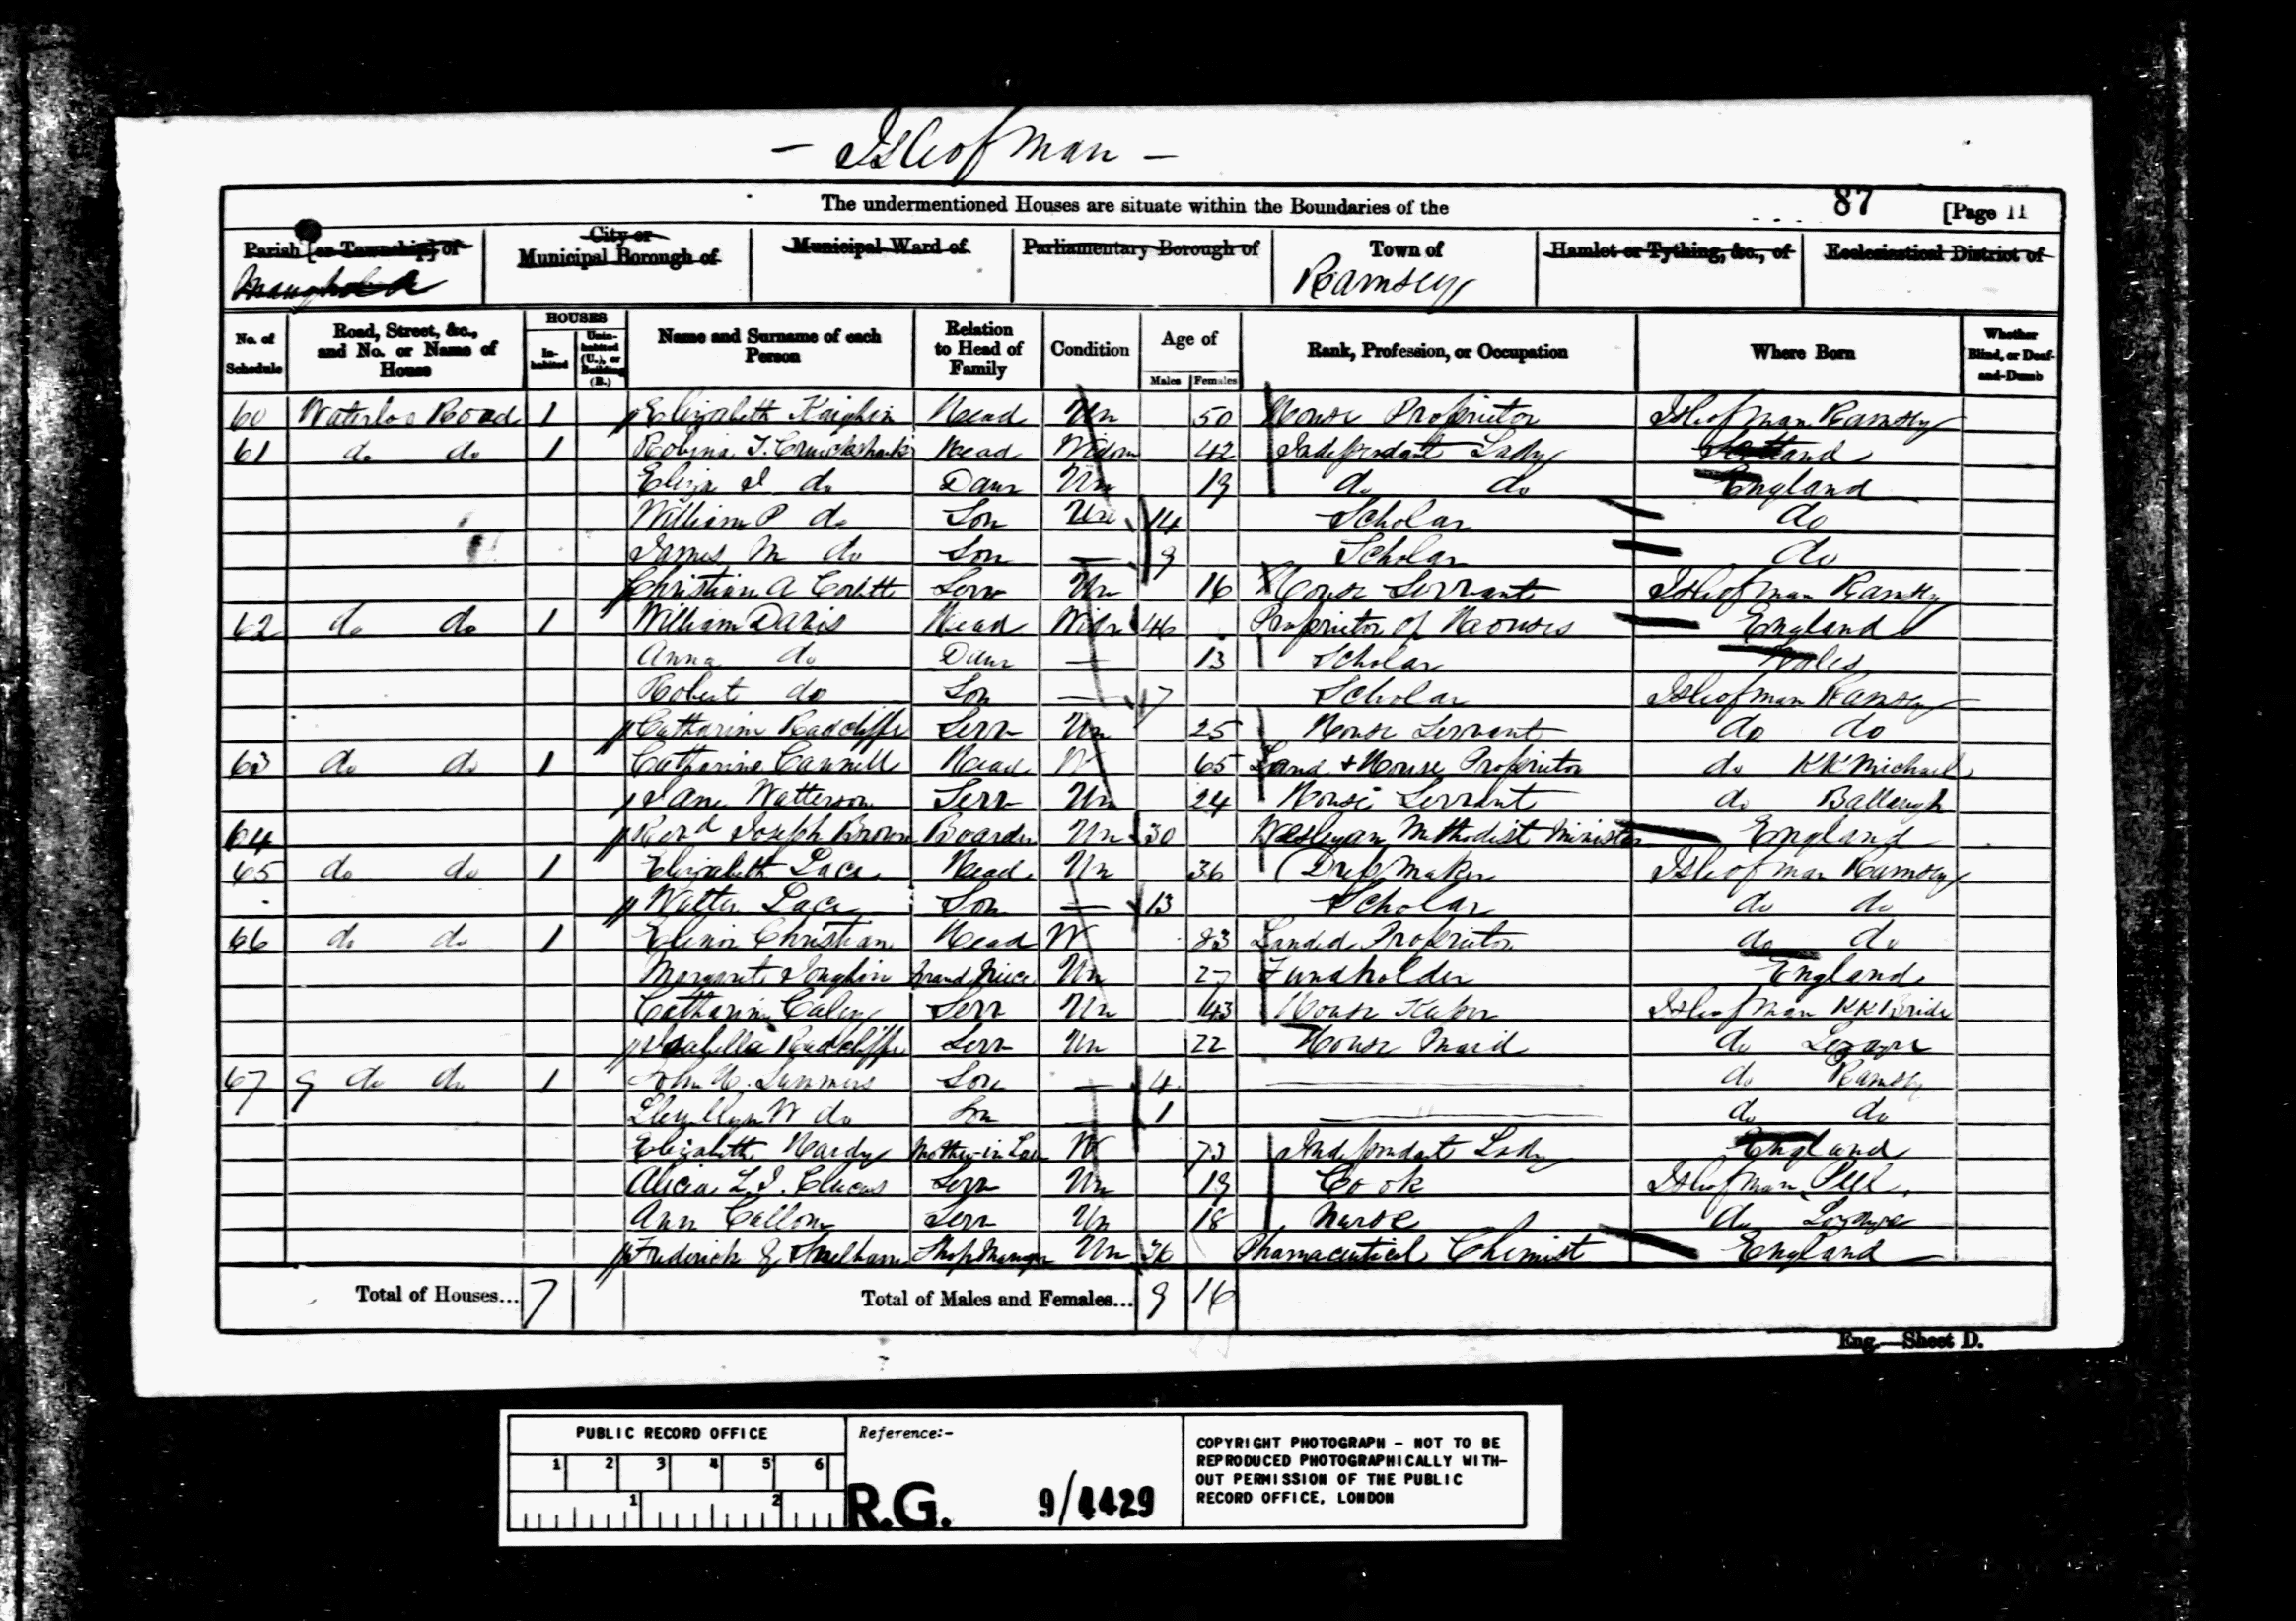 - Isle of Man -
The undermentioned Houses are situate within the Boundaries of the
87 [Page 11
Parish [or Township] of
Maughold
City or Municipal Borough of
Municipal Ward of
Parliamentary Borough of
Town of
Ramsey
Hamlet or Tything, &c., of
Ecclesiastical District of
No. of Schedule
Road, Street, &c., and No. or Name of House
HOUSES
In-habited
Unin-habited (U.), or Building (B.)
Name and Surname of each Person
Relation to Head of Family
Condition
Age of
Males
Females
Rank, Profession, or Occupation
Where Born
Whether Blind, or Deaf-and-Dumb
60 Waterloo Road 1 Elizabeth Kaighin Head Un 50 House Proprietor Isle of Man Ramsey
61 do do 1 Robina T. Cruickshank Head Widow 42 Independant Lady Scotland
Eliza I do Daur Un 19 do do England
William P do Son Un 14 Scholar do
James M do Son — 9 Scholar do
Christian A Corlett Serv Un 16 House Servant Isle of Man Ramsey
62 do do 1 William Davis Head Widr 46 Proprietor of Houses England
Anna do Daur — 13 Scholar Wales
Robert do Son — 7 Scholar Isle of Man Ramsey
Catharine Radcliffe Serv Un 25 House Servant do do
63 do do 1 Catharine Cannell Head W 65 Land & House Proprietor do KK Michael
Jane Watterson Serv Un 24 House Servant do Ballaugh
64 Revd Joseph Brown Boarder Un 30 Wesleyan Methodist Minister England
65 do do 1 Elizabeth Lace Head Un 36 Dress Maker Isle of Man Ramsey
Walter Lace Son — 13 Scholar do do
66 do do 1 Elinor Christian Head W 83 Landed Proprietor do do
Margaret Joughin Grand Niece Un 27 Fundholder England
Catharine Caley Serv Un 43 House Keeper Isle of Man KK Bride
Isabella Radcliffe Serv Un 22 House Maid do Lezayre
67 9 do do 1 John N. Summers Son — 4 do Ramsey
Llewellyn W do Son 1 do do
Elizabeth Hardy Mother-in-Law W 73 Independant Lady England
Alicia L. I. Clucas Serv Un 19 Cook Isle of Man Peel
Ann Callow Serv Un 18 Nurse do Lezayre
Frederick Smelham Shop Manager Un 36 Pharmaceutical Chemist England
Total of Houses... 7 Total of Males and Females... 9 16
Eng.—Sheet D.
PUBLIC RECORD OFFICE
1 2 3 4 5 6
1 2
Reference:-
R.G. 9/4429
COPYRIGHT PHOTOGRAPH - NOT TO BE
REPRODUCED PHOTOGRAPHICALLY WITH-
OUT PERMISSION OF THE PUBLIC
RECORD OFFICE, LONDON